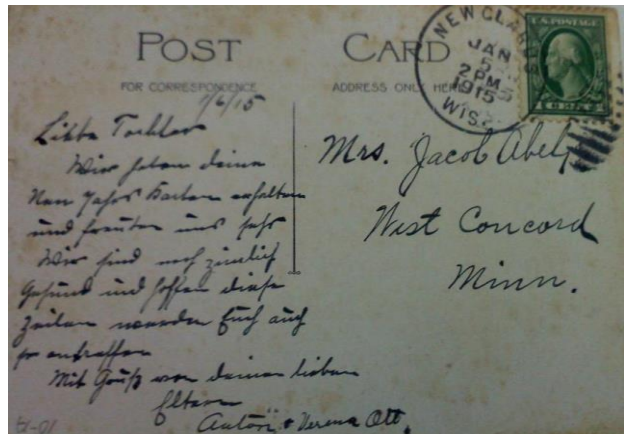 POST CARD
FOR CORRESPONDENCE
ADDRESS ONLY HERE
NEW GLARUS
JAN
5
2 PM
1915
WIS.
U.S. POSTAGE
1 CENT 1
1/6/15
Liebe Tochter
Wir haben deine
Neu Jahrs Karten erhalten
und freuten uns sehr
Wir sind noch zimlich
Gesund und hoffen diese
Zeilen werden Euch auch
so antreffen
Mit Gruß von deinen lieben
Eltern
Anton + Verena Ott
Mrs. Jacob Abely
West Concord
Minn.